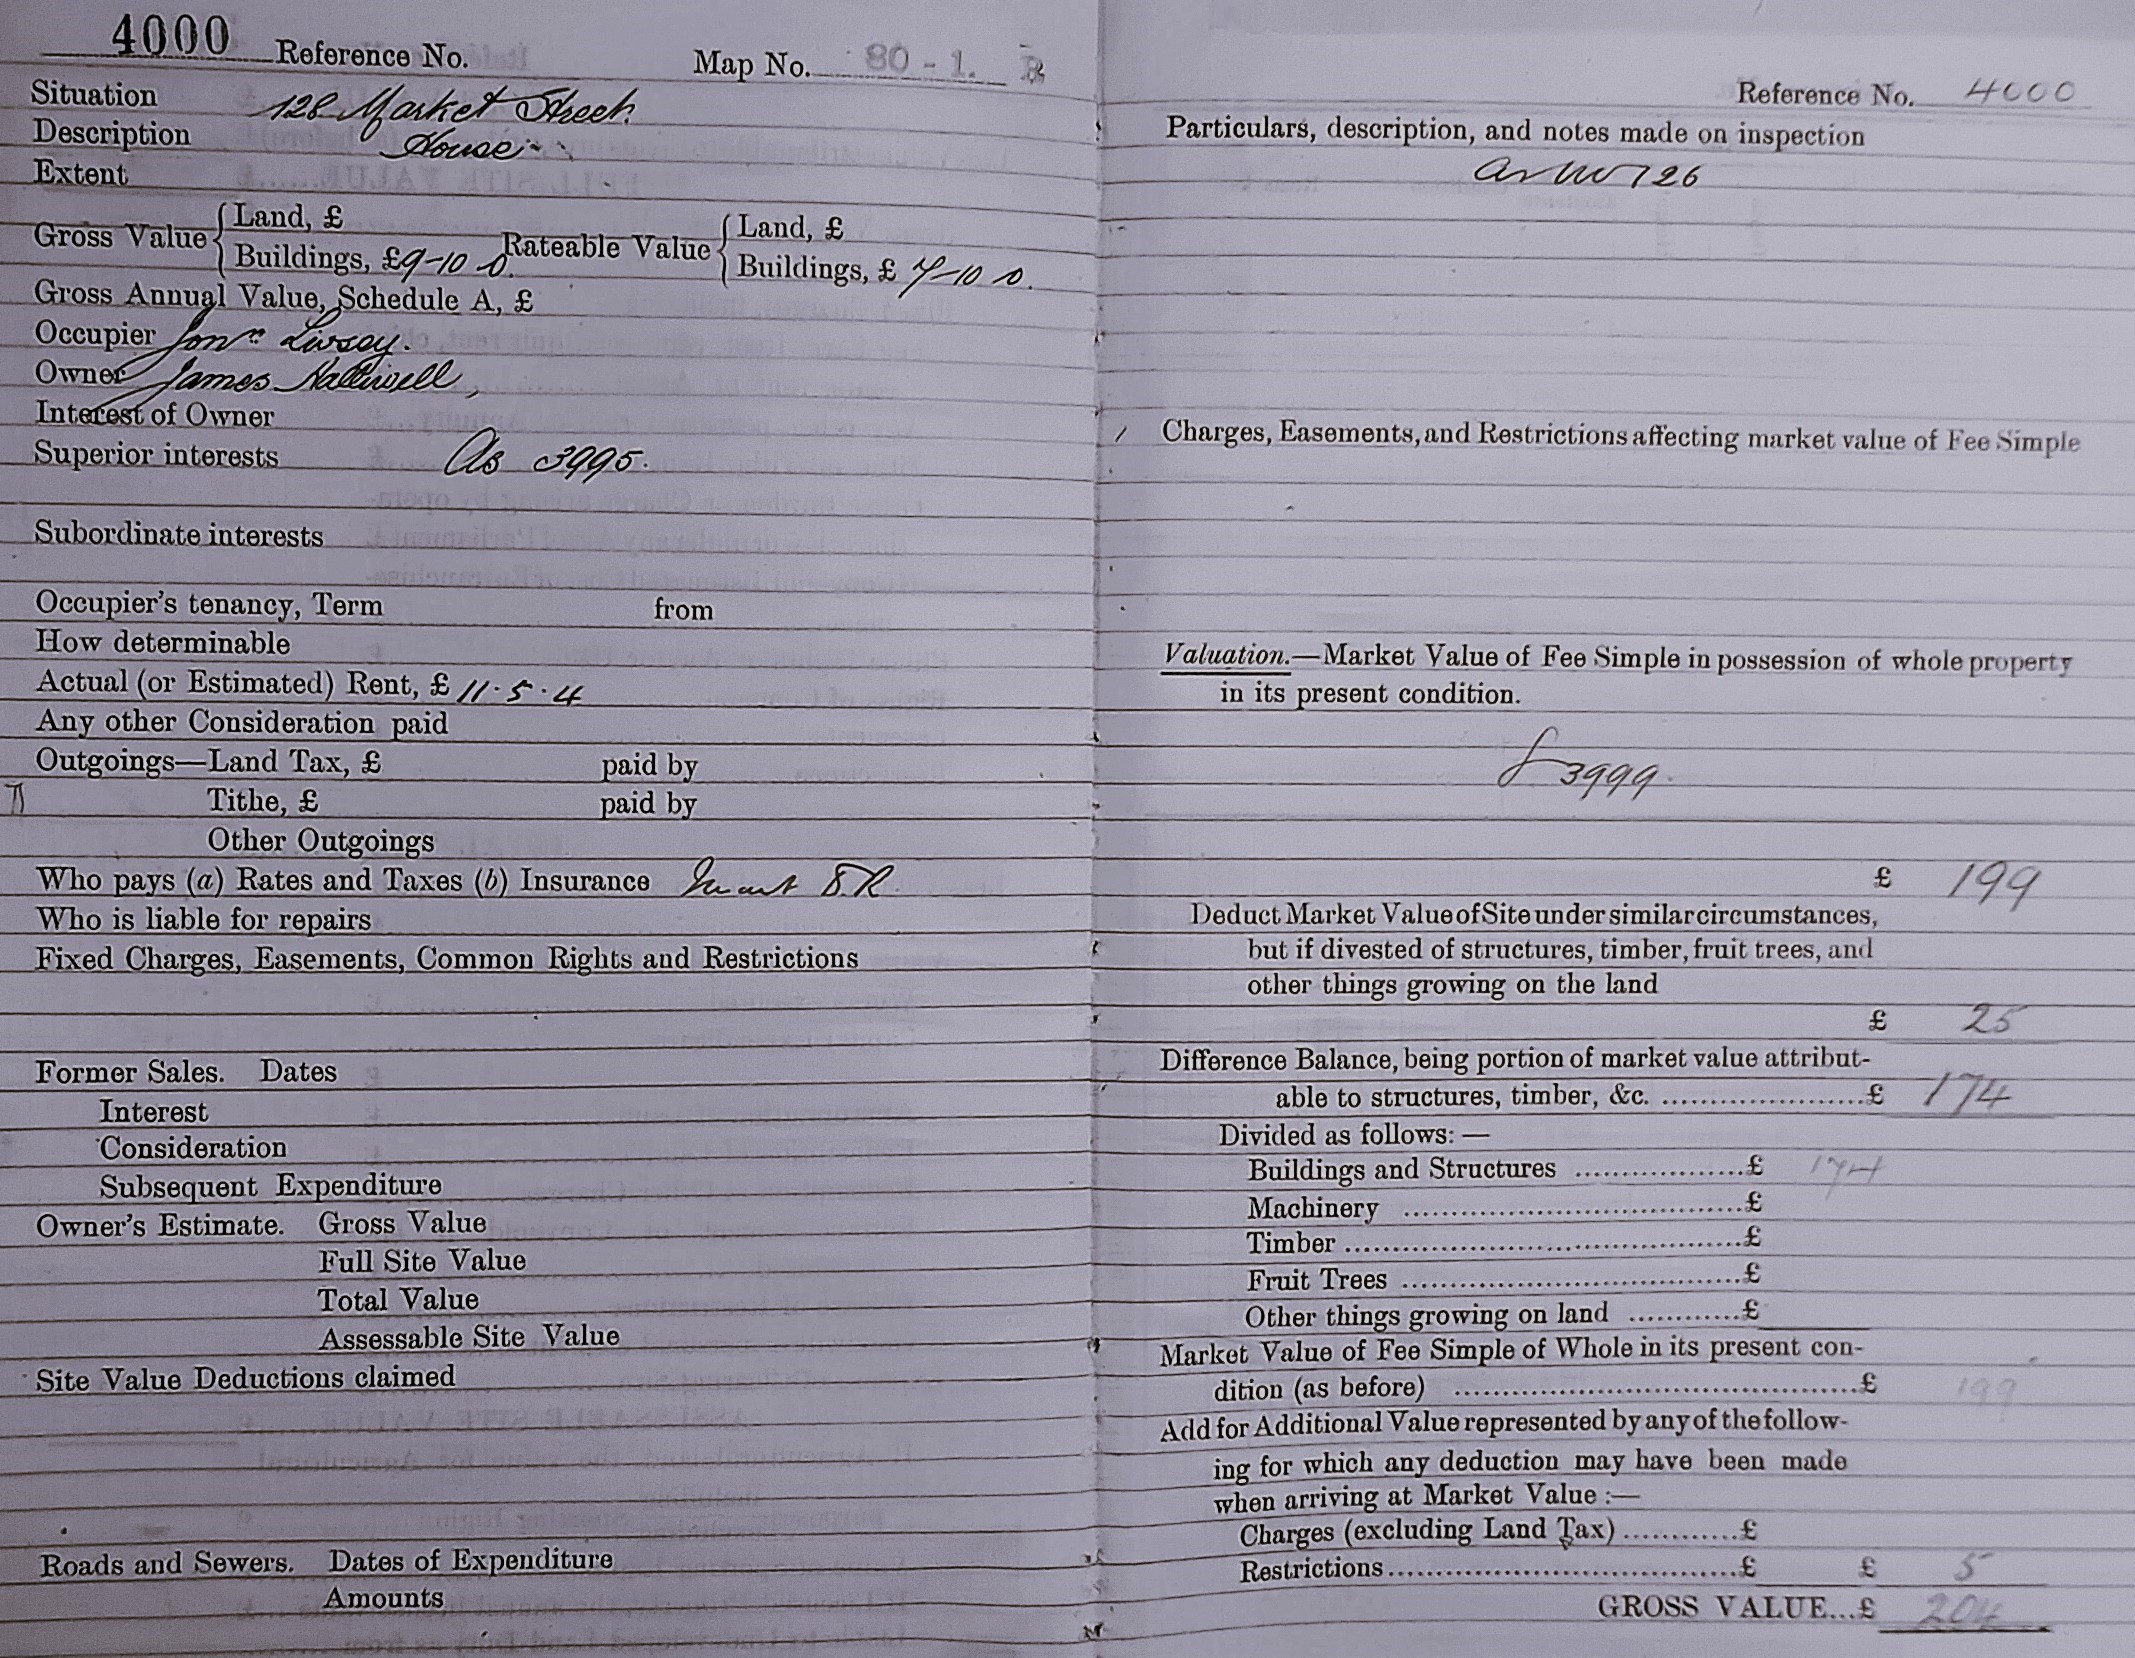 4000 Reference No. Map No. 80 - 1. B
Situation 128 Market Street.
Description House
Extent
Gross Value { Land, £
Buildings, £9-10 0. Rateable Value { Land, £
Buildings, £ 7-10 0.
Gross Annual Value, Schedule A, £
Occupier Jonn Livsey.
Owner James Halliwell,
Interest of Owner
Superior interests As 3995.
Subordinate interests
Occupier's tenancy, Term from
How determinable
Actual (or Estimated) Rent, £ 11·5·4
Any other Consideration paid
Outgoings—Land Tax, £ paid by
Tithe, £ paid by
Other Outgoings
Who pays (a) Rates and Taxes (b) Insurance
Who is liable for repairs
Fixed Charges, Easements, Common Rights and Restrictions
Former Sales. Dates
Interest
Consideration
Subsequent Expenditure
Owner's Estimate. Gross Value
Full Site Value
Total Value
Assessable Site Value
Site Value Deductions claimed
Roads and Sewers. Dates of Expenditure
Amounts
Reference No. 4000
Particulars, description, and notes made on inspection
as No 126
Charges, Easements, and Restrictions affecting market value of Fee Simple
Valuation.—Market Value of Fee Simple in possession of whole property
in its present condition.
3999.
£ 199
Deduct Market Value of Site under similar circumstances,
but if divested of structures, timber, fruit trees, and
other things growing on the land
£ 25
Difference Balance, being portion of market value attribut-
able to structures, timber, &c. .....................£ 174
Divided as follows: —
Buildings and Structures ..................£ 174
Machinery ....................................£
Timber ..........................................£
Fruit Trees ....................................£
Other things growing on land ............£
Market Value of Fee Simple of Whole in its present con-
dition (as before) ...........................................£ 199
Add for Additional Value represented by any of the follow-
ing for which any deduction may have been made
when arriving at Market Value :—
Charges (excluding Land Tax) ............£
Restrictions.....................................£ £ 5
GROSS VALUE...£ 204